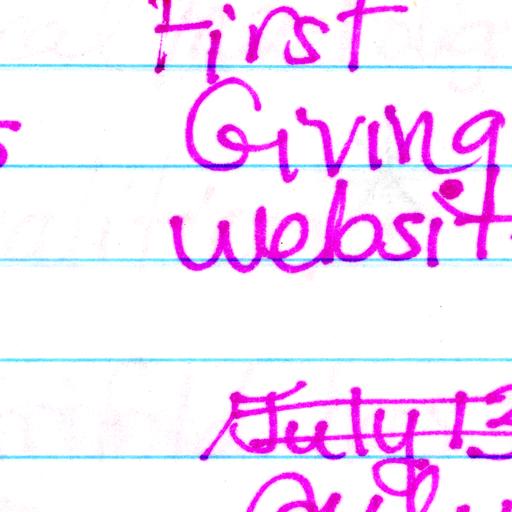 First
Giving
websit
July 13